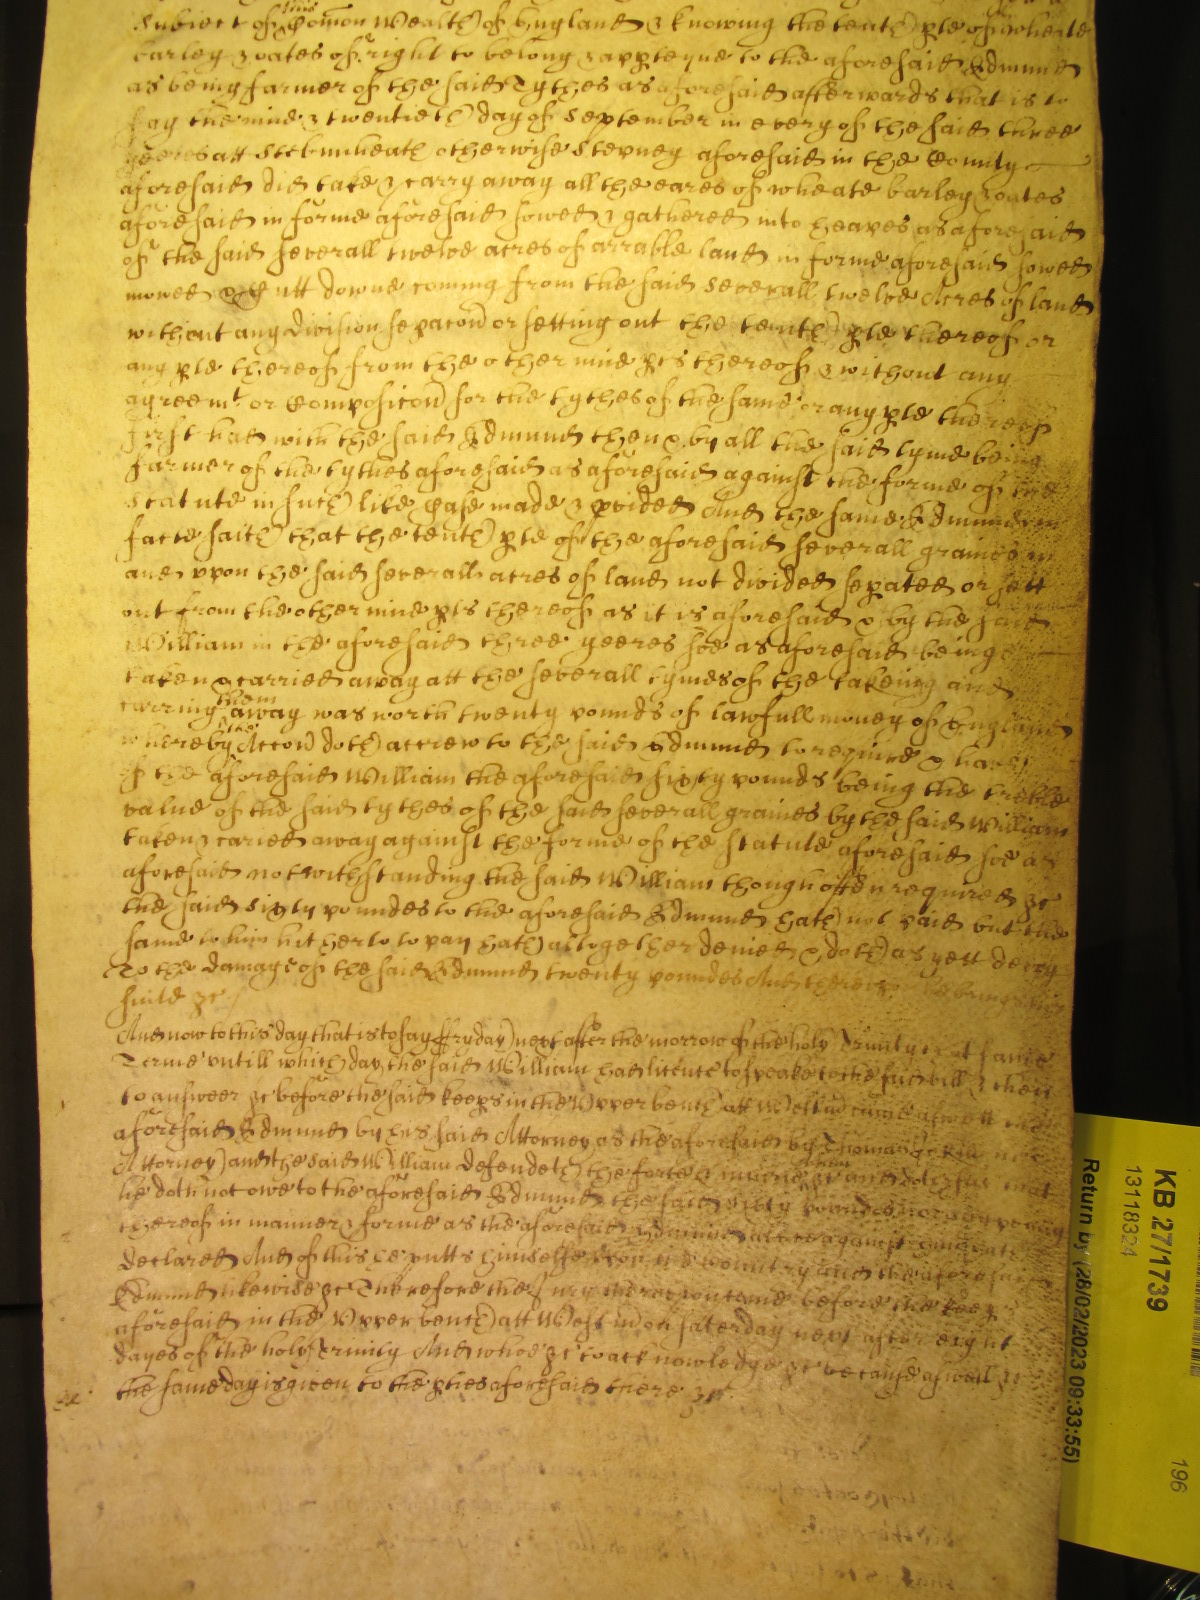 Subiect of this Comon Wealth of England & knowing the tenth pte of wheate
barley & oates of right to belong & apperteyne to the aforesaid Edmund
as being farmer of the said Tythes as aforesaid afterwards that is to
say the nine & twentieth day of September in every of the said three
yeeres att Stebunheath otherwise Stepney aforesaid in the County
aforesaid did take & carry away all the eares of wheate barley & oates
aforesaid in forme aforesaid sowed & gathered into heapes as aforesaid
of the said severall twelve acres of arrable land in forme aforesaid sowed
mowed & Cutt downe coming from the said severall twelve Acres of land
without any division sepacon or setting out the tenth pte thereof or
any pte thereof from the other nine pts thereof & without any
agreemt or Composicon for the tythes of the same or any pte thereof
first had with the said Edmund then & by all the said tyme being
farmer of the tythes aforesaid as aforesaid against the forme of the
Statute in such like case made & pvided And the same Edmund in
facte saith that the tenth pte of the aforesaid severall graines in
and vpon the said severall acres of land not divided sepated or sett
out from the other nine pts thereof as it is aforesaid & by the said
William in the aforesaid three yeeres soe as aforesaid being
taken & carried away att the severall tymes of the takeing and
carring them away was worth twenty pounds of lawfull money of England
whereby the Accon doth accrew to the said Edmund to require & have
of the aforesaid William the aforesaid sixty pounds being the treble
value of the said tythes of the said severall graines by the said William
taken & caried away against the forme of the statute aforesaid soe as
aforesaid notwithstanding the said William though often required &c
the said sixty poundes to the aforesaid Edmund hath not paid but the
same to him hitherto to pay hath altogether denied & doth as yett deny
To the damage of the said Edmund twenty poundes And thereupon he brings his
suite &c
And now to this day that is to say ffryday next after the morrow of the holy Trinity in that same
Terme vntill which day the said William had licence to speake to the said bill & then
to answeer &c before the said keeps in the Vpper bench att Westm came aswell the
aforesaid Edmund by his said Attorney as the aforesaid by Thomas his
Attorney and the said William defendeth the force & iniurie when &c and doth say that
he doth not owe to the aforesaid Edmund the said sixty poundes nor any penny
thereof in manner & forme as the aforesaid Edmund above against him hath
declared And of this he putts himselfe vpon the Country and the aforesaid
Edmund likewise &c Therefore the Iury thereupon came before the keeps
aforesaid in the Vpper bench att Westm on saterday next after eight
dayes of the holy Trinity And whoe &c to acknowledge &c because aswell &c
the same day is given to the pties aforesaid there &c
KB 27/1739
13118324
Return by (28/02/2023 09:33:55)
196